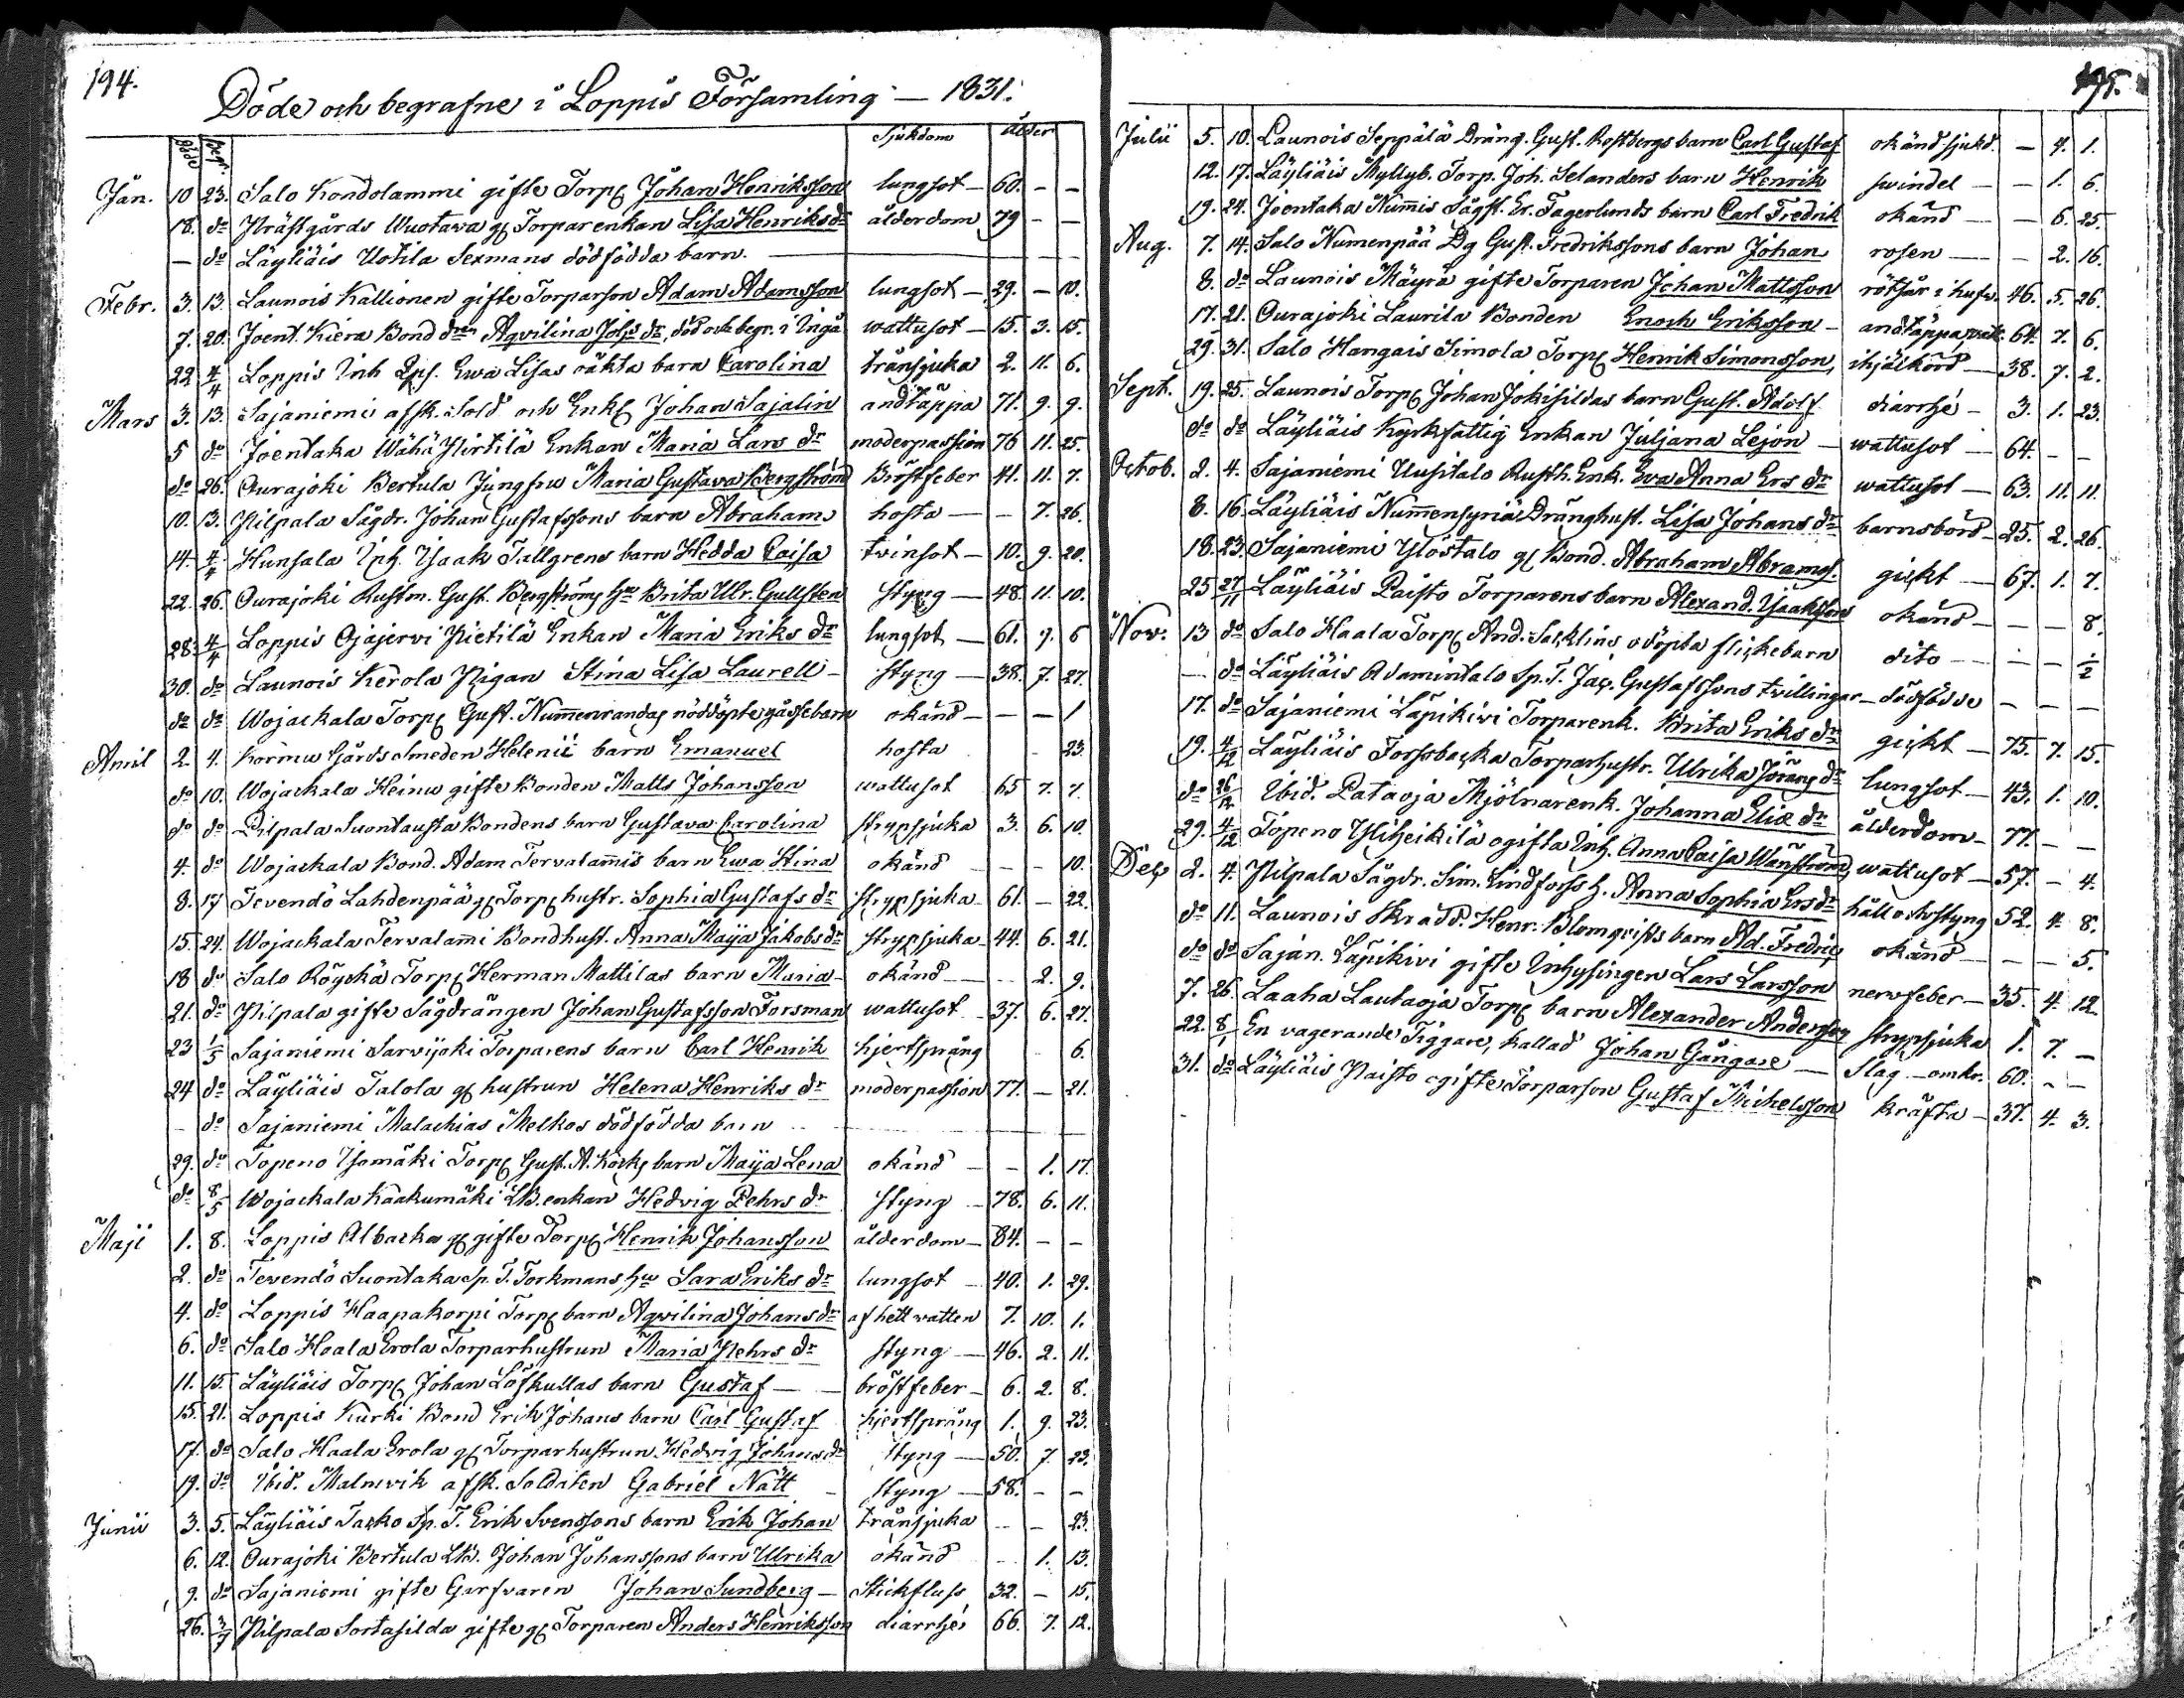 194.
Döde och begrafne i Loppis Församling — 1831.
Döde Begr. Sjukdom Ålder
Jan. 10 23. Salo Kondolammi gifte Torp. Johan Henriksson lungsot — 60. — —
18. do Prästgårds Wuotava g. Torparenkan Lisa Henriksdr ålderdom 79 — —
— do Läyliäis Uotila Sexmans dödfödda barn. — — —
Febr. 3. 13. Launois Kallionen gifte Torparson Adam Adamsson lungsot — 29. — 10.
7. 20. Joent. Kiera Bond drn Aqvilina Johs dr, död och begr. i Ingå wattusot — 15. 3. 15.
22 4/4 Loppis Inh Qps. Ewa Lisas oäkta barn Carolina trånsjuka 2. 11. 6.
Mars 3. 13. Sajaniemi afsk. Sold och Enkl. Johan Sajalin andtäppa 71. 9. 9.
5 do Joentaka Wähä Pirtilä Enkan Maria Lars dr moderpassion 76 11. 25.
do 26. Ourajoki Bertula Jungfru Maria Gustava Bergström Bröstfeber 41. 11. 7.
10. 13. Pilpala Sågdr. Johan Gustafssons barn Abraham hosta — — 7. 26.
14. 4/4 Hunsala Inh. Isaak Tallgrens barn Hedda Caisa tvinsot — 10. 9. 20.
22. 26. Ourajoki Rustm. Gust. Bergströms hu Brita Ulr. Gullsten styng — 48. 11. 10.
28. 4/4 Loppis Ojajervi Pietilä Enkan Maria Eriks dr lungsot — 61. 9. 6
30. do Launois Kerola Pigan Stina Lisa Laurell — styng — 38. 7. 27.
do do Wojackala Torp. Gust. Nummenrandas nöddöpte gåssebarn okänd — — — 1
April 2. 4. Kormu Gårds Smeden Helenii barn Emanuel hosta 23.
do 10. Wojackala Heinu gifte Bonden Matts Johansson wattusot 65 7. 7.
do do Pilpala Suontausta Bondens barn Gustava Carolina strypsjuka 3. 6. 10.
4. do Wojackala Bond. Adam Tervalammis barn Ewa Stina okänd — — 10.
8. 17 Tevendö Lahdenpää g. Torp. hustr. Sophia Gustafs dr strypsjuka 61. — 22.
15. 24. Wojackala Tervalammi Bondhust. Anna Maja Jakobs dr strypsjuka 44. 6. 21.
18 do Salo Röyskä Torp. Herman Mattilas barn Maria — okänd — 2. 9.
21. do Pilpala gifte Sågdrängen Johan Gustafsson Forsman wattusot 37. 6. 27.
23 1/5 Sajaniemi Sarvijoki Torparens barn Carl Henrik hjertsprång 6.
24 do Läyliäis Talola g. hustrun Helena Henriks dr moderpassion 77. — 21.
— do Sajaniemi Malachias Melkos dödfödda barn
29. do Topeno Isomäki Torp. Gust. A. Körks barn Maija Lena okänd — — 1. 17.
do 8/5 Wojackala Kaakumäki LB. enkan Hedvig Pehrs dr styng — 78. 6. 11.
Maji 1. 8. Loppis Albacka g. gifte Torp. Henrik Johansson ålderdom — 84. — —
2. do Tevendö Suontaka Sp. T. Torkmans hu Sara Eriks dr lungsot — 40. 1. 29.
4. do Loppis Haapakorpi Torp. barn Aqvilina Johans dr af hett watten 7. 10. 1.
6. do Salo Haala Erola Torparhustrun Maria Pehrs dr styng — 46. 2. 11.
11. 15. Läyliäis Torp. Johan Löfkullas barn Gustaf — bröstfeber — 6. 2. 8.
15. 21. Loppis Kurki Bond Erik Johans barn Carl Gustaf hjertsprång 1. 9. 23.
17. do Salo Haala Erola g. Torparhustrun Hedvig Johans dr styng — 50. 7. 23.
19. do Ibid. Malmvik afsk. Soldaten Gabriel Nätt — styng — 58. — —
Junii 3. 5. Läyliäis Tarko Sp. T. Erik Svenssons barn Erik Johan trånsjuka — — 23.
6. 12. Ourajoki Bertula LB. Johan Johanssons barn Ulrika okänd — 1. 13.
9. do Sajaniemi gifte Garfvaren Johan Sundberg — Stickfluss 32. — 15.
26. 3/7 Pilpala Sortasilda gifte g. Torparen Anders Henriksson diarrhé 66. 7. 12.
195.
Julii 5. 10. Launois Seppälä Dräng. Gust. Rostbergs barn Carl Gustaf okänd sjukd. — 4. 1.
12. 17. Läyliäis Myllyb. Torp. Joh. Selanders barn Henrik swindel — — 1. 6.
19. 24. Joentaka Nummis Sågst. Er. Fagerlunds barn Carl Fredrik okänd — — 6. 25.
Aug. 7. 14. Salo Numenpää Dg Gust. Fredrikssons barn Johan rosen — — 2. 16.
8. do Launois Mäyrä gifte Torparen Johan Mattsson rötsår i hufv. 46. 5. 26.
17. 21. Ourajoki Laurila Bonden Enoch Eriksson — andtäppa 64. 7. 6.
29. 31. Salo Hangais Simola Torp. Henrik Simonsson, ihjälkörd — 38. 7. 2.
Sept. 19. 25. Launois Torp. Johan Jokisildas barn Gust. Adolf diarrhé — 3. 1. 23.
do do Läyliäis Kyrkfattig Enkan Juljana Lejon — wattusot — 64. — —
Octob. 2. 4. Sajaniemi Uusitalo Rusth. Enk. Eva Anna Ers dr wattusot — 63. 11. 11.
8. 16. Läyliäis Nummensyrjä Dränghust. Lisa Johans dr barnsbörd — 25. 2. 26.
18. 23. Sajaniemi Ylöstalo g. Bond. Abraham Abrams. gickt — 67. 1. 7.
25 27/11 Läyliäis Paisto Torparens barn Alexand. Isaksson okänd — — — 8.
Nov. 13 do Salo Haala Torp. And. Sacklins odöpta flickebarn dito — — — 1/2
— do Läyliäis Adamintalo Sp. T. Jac. Gustafssons tvillingar — dödfödde — — —
17. do Sajaniemi Läpikivi Torparenk. Brita Eriks dr gickt — 75. 7. 15.
19. 4/12 Läyliäis Forssbacka Torparhustr. Ulrika Jörans dr lungsot — 43. 1. 10.
do 26/12 Ibid. Pataoja Mjölnarenk. Johanna Eliæ dr ålderdom — 77. — —
29. 4/12 Topeno Yliheikilä ogifta Inh. Anna Caisa Wänström wattusot — 57. — 4.
Dec. 2. 4. Pilpala Sågdr. Sim. Lindforss h. Anna Sophia Ersdr håll och styng 52. 4. 8.
do 11. Launois Skrädd. Henr. Blomqvists barn Ad. Fredric okänd — — — 5.
do do Sajan. Läpikivi gifte Inhysingen Lars Larsson nervfeber — 35. 4. 12.
7. 26. Laaha Lautaoja Torp. barn Alexander Andersson strypsjuka 1. 7. —
22. 8/1 En vagerande Tiggare, kallad Johan Gångare — Slag — omkr. 60. — —
31. do Läyliäis Paisto ogifte Torparson Gustaf Michelsson kräfta — 37. 4. 3.